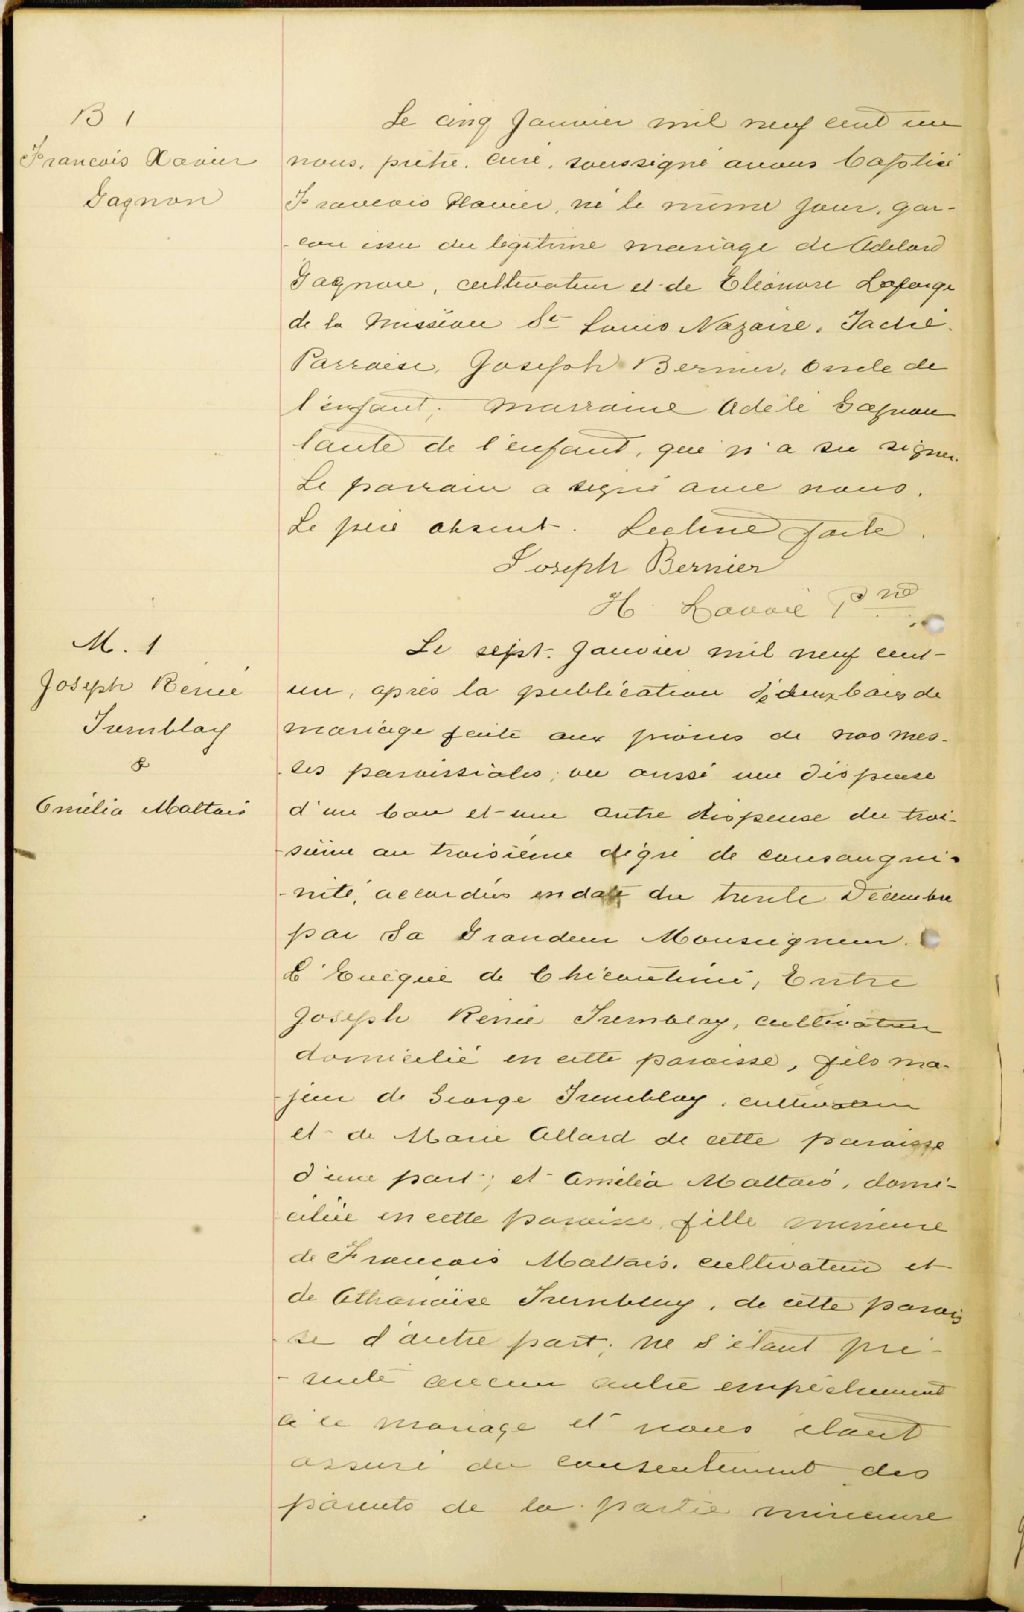 B 1
François Xavier
Gagnon
Le cinq Janvier mil neuf cent un
nous, prêtre, curé, soussigné avons baptisé
François Xavier, né le même jour, gar-
-çon issu du légitime mariage de Adélard
Gagnon, cultivateur et de Eléonore Laforge
de la Mission St Louis Nazaire, Taché.
Parrain, Joseph Bernier, oncle de
l'enfant; marraine Adèle Gagnon
tante de l'enfant, qui n'a su signer.
Le parrain a signé avec nous.
Le père absent. Lecture faite.
Joseph Bernier
H. Lavoie Ptre
M. 1
Joseph Rénié
Tremblay
&
Amélia Maltais
Le sept Janvier mil neuf cent-
un, après la publication de deux bans de
mariage faite aux prônes de nos mes-
-ses paroissiales; vu aussi une dispense
d'un ban et une autre dispense du troi-
-sième au troisième dégré de consangui-
-nité, accordées en date du trente Décembre
par Sa Grandeur Monseigneur
L'Evêque de Chicoutimi, Entre
Joseph Rénié Tremblay, cultivateur
domicilié en cette paroisse, fils ma-
-jeur de George Tremblay, cultivateur
et de Marie Allard de cette paroisse
d'une part; et Amélia Maltais, domi-
-ciliée en cette paroisse, fille mineure
de François Maltais, cultivateur et
de Athanaïse Tremblay, de cette parois
-se d'autre part; ne s'étant pré-
-senté aucun autre empêchement
à ce mariage et nous étant
assuré du consentement des
parents de la partie mineure